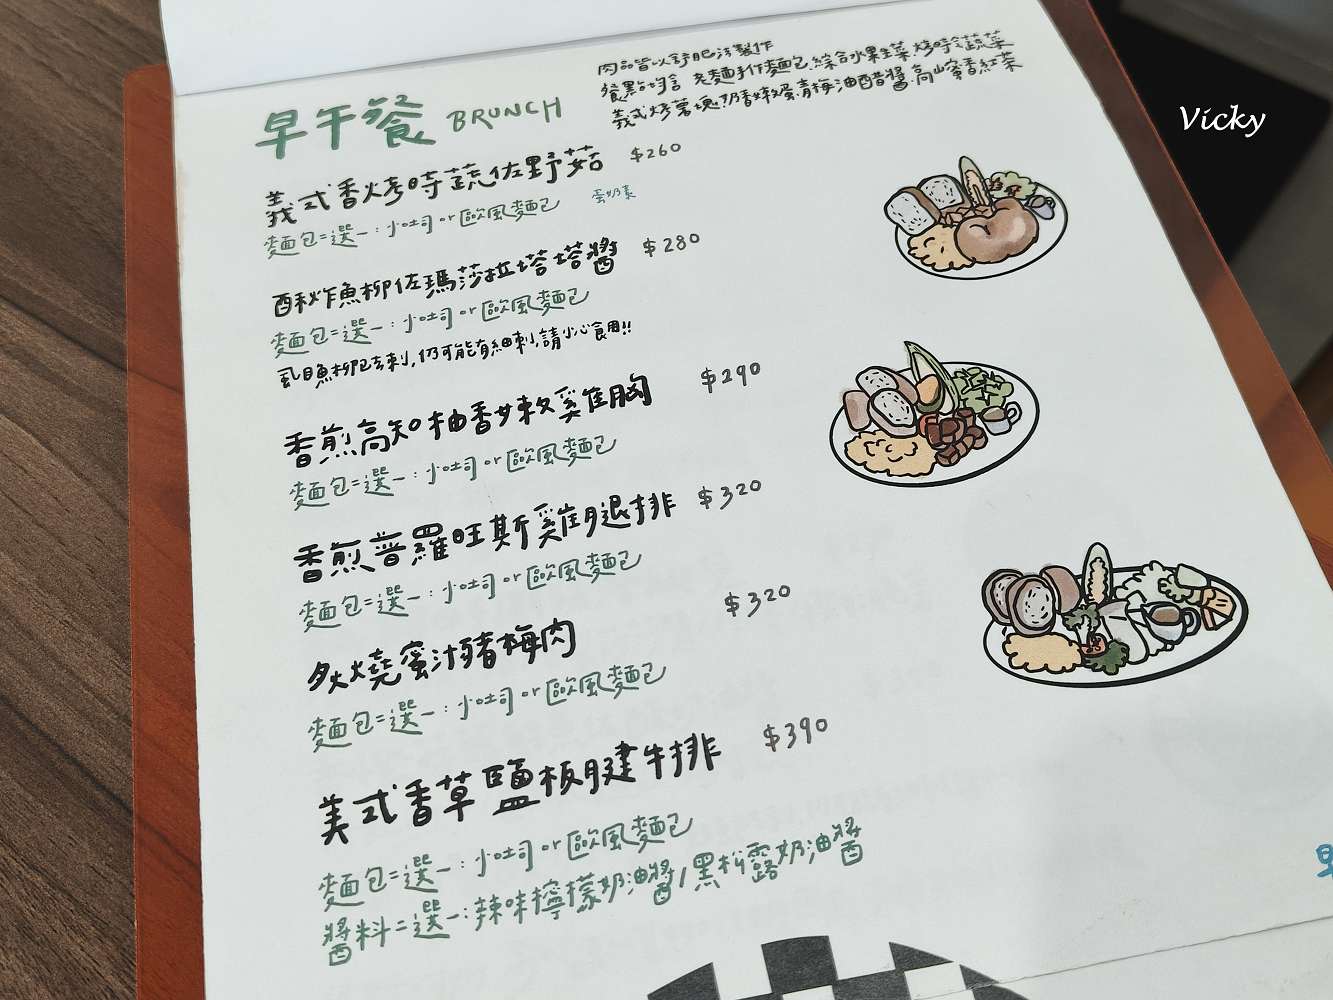 肉品皆以舒肥法製作
餐點均含 老麵手作麵包.綜合水果生菜.烤時令蔬菜
義式烤薯塊.奶香嫩蛋.青梅油醋醬.高山蜜香紅茶
早午餐 BRUNCH
Vicky
義式香烤時蔬佐野菇 $260
麵包二選一:小吐司 or 歐風麵包 蛋奶素
酥炸魚柳佐瑪莎拉塔塔醬 $280
麵包二選一:小吐司 or 歐風麵包
虱目魚柳已去刺,仍可能有細刺,請小心食用!!
香煎高知柚香嫩雞胸 $290
麵包二選一:小吐司 or 歐風麵包
香煎普羅旺斯雞腿排 $320
麵包二選一:小吐司 or 歐風麵包
炙燒蜜汁豬梅肉 $320
麵包二選一:小吐司 or 歐風麵包
美式香草鹽板腱牛排 $390
麵包二選一:小吐司 or 歐風麵包
醬料二選一:辣味檸檬奶油醬/黑松露奶油醬